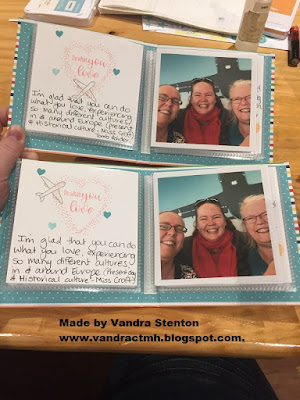 do what you
love
I'm glad that you can do
what you love, experiencing
so many different cultures
in & around Europe (Present
& Historical culture - Miss Croft)
Tomb Raider
do what you
love
I'm glad that you can do
what you love, experiencing
so many different cultures
in & around Europe (Present day
& Historical culture - Miss Croft)
Made by Vandra Stenton
www.vandractmh.blogspot.com.